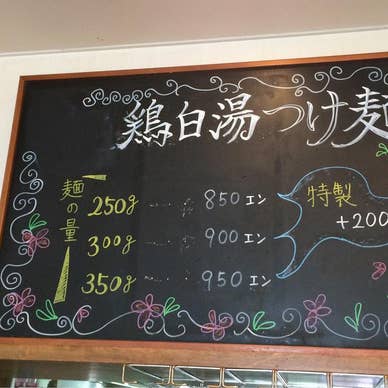 鶏白湯つけ麺
麺の量
250g ...... 850エン
300g ...... 900エン
350g ...... 950エン
特製
+200